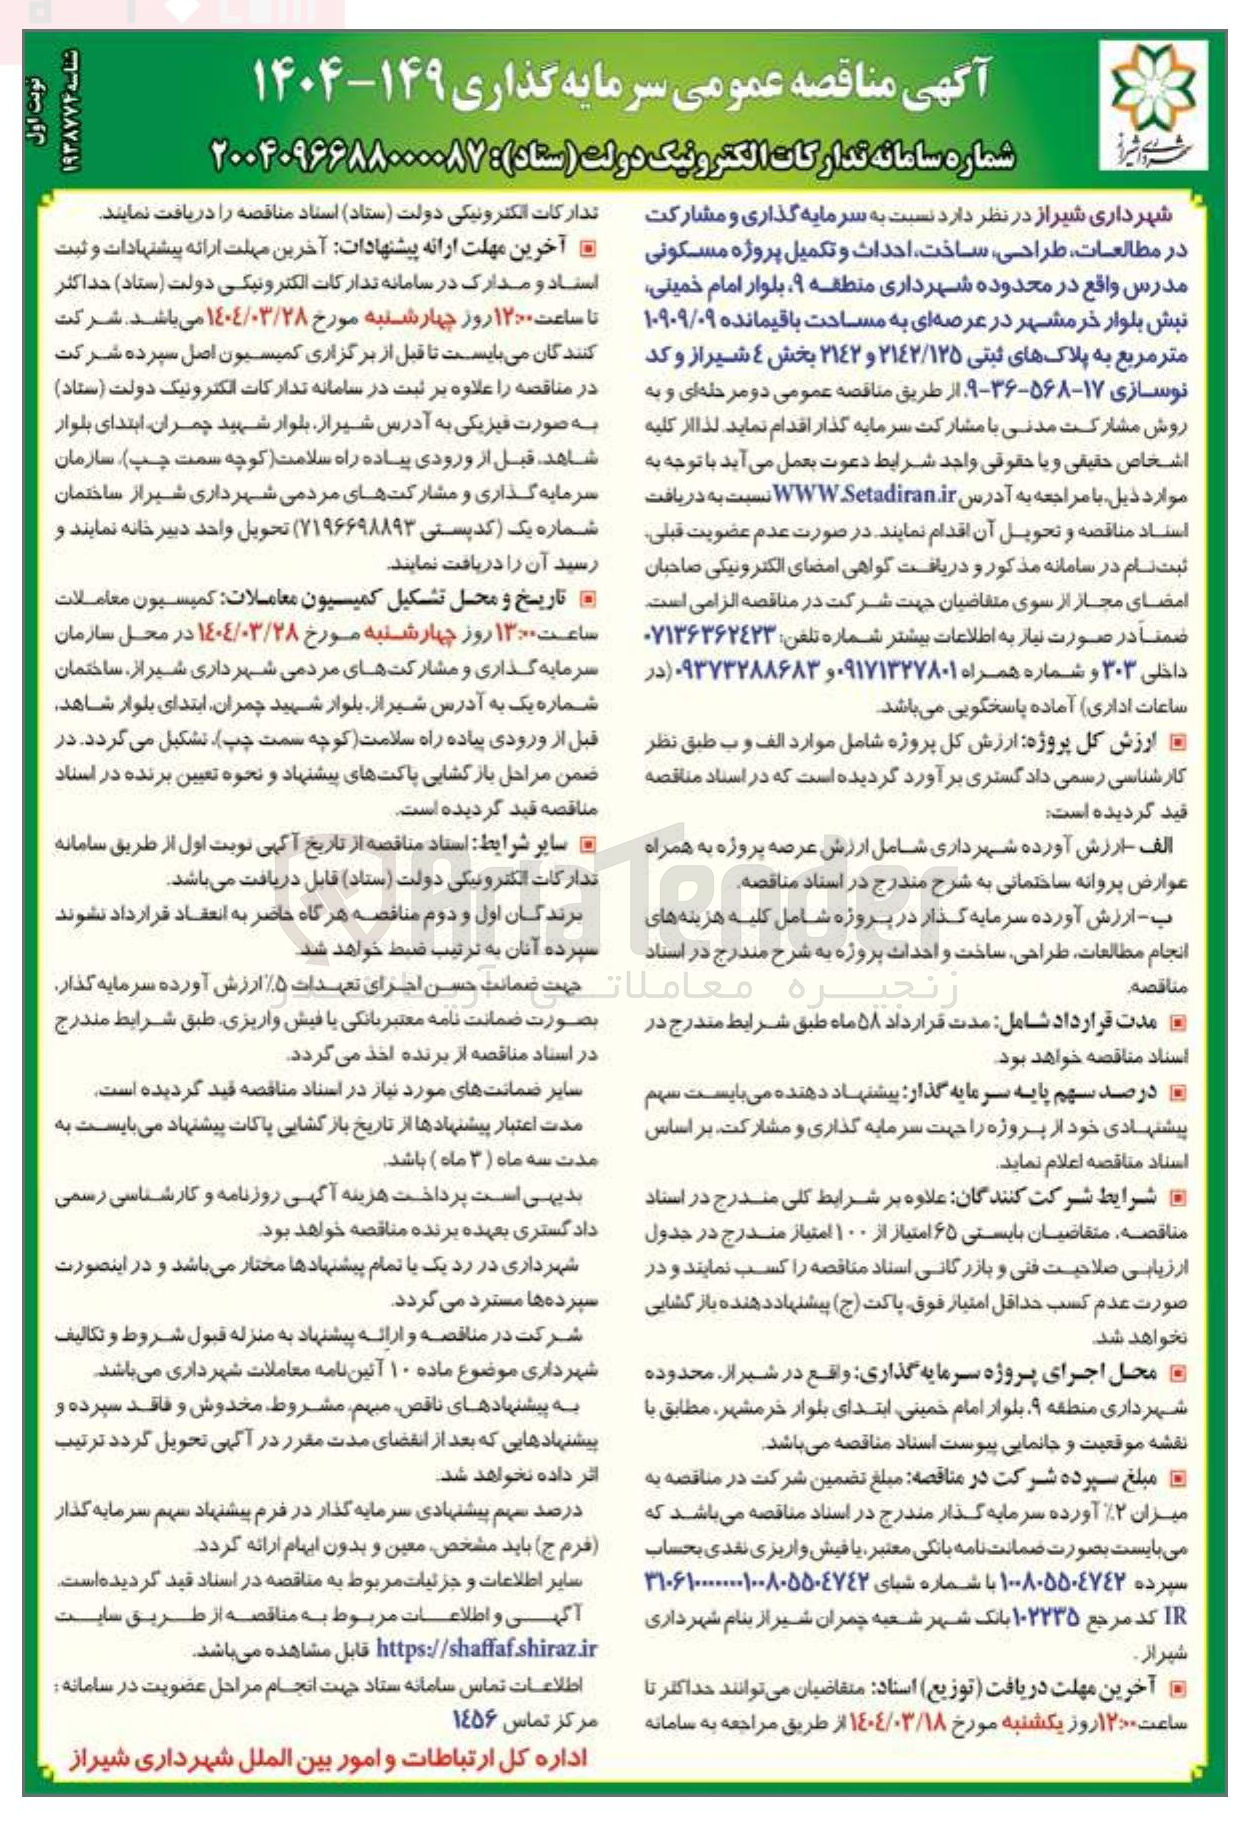 آگهی مناقصه عمومی سرمایه‌گذاری ۱۴۹-۱۴۰۴
شماره سامانه تدارکات الکترونیک دولت (ستاد): ۲۰۰۴۰۹۶۶۸۸۰۰۰۰۸۷
شناسه ۱۹۳۸۷۷۴
نوبت اول
شهرداری شیراز
شهرداری شیراز در نظر دارد نسبت به سرمایه‌گذاری و مشارکت
در مطالعات، طراحی، ساخت، احداث و تکمیل پروژه مسکونی
مدرس واقع در محدوده شهرداری منطقه ۹، بلوار امام خمینی،
نبش بلوار خرمشهر در عرصه‌ای به مساحت باقیمانده ۱۰۹۰۹/۰۹
مترمربع به پلاک‌های ثبتی ۲۱۴۲/۱۲۵ و ۲۱۴۲ بخش ۴ شیراز و کد
نوسازی ۱۷-۵۶۸-۳۶-۹، از طریق مناقصه عمومی دومرحله‌ای و به
روش مشارکت مدنی با مشارکت سرمایه گذار اقدام نماید. لذا از کلیه
اشخاص حقیقی و یا حقوقی واجد شرایط دعوت بعمل می‌آید با توجه به
موارد ذیل، با مراجعه به آدرس WWW.Setadiran.ir نسبت به دریافت
اسناد مناقصه و تحویل آن اقدام نمایند. در صورت عدم عضویت قبلی،
ثبت‌نام در سامانه مذکور و دریافت گواهی امضای الکترونیکی صاحبان
امضای مجاز از سوی متقاضیان جهت شرکت در مناقصه الزامی است.
ضمناً در صورت نیاز به اطلاعات بیشتر شماره تلفن: ۰۷۱۳۶۳۶۲۴۲۳
داخلی ۳۰۳ و شماره همراه ۰۹۱۷۱۳۲۷۸۰۱ و ۰۹۳۷۳۲۸۸۶۸۳ (در
ساعات اداری) آماده پاسخگویی می‌باشد.
ارزش کل پروژه: ارزش کل پروژه شامل موارد الف و ب طبق نظر
کارشناسی رسمی دادگستری برآورد گردیده است که در اسناد مناقصه
قید گردیده است:
الف -ارزش آورده شهرداری شامل ارزش عرصه پروژه به همراه
عوارض پروانه ساختمانی به شرح مندرج در اسناد مناقصه.
ب-ارزش آورده سرمایه‌گذار در پروژه شامل کلیه هزینه‌های
انجام مطالعات، طراحی، ساخت و احداث پروژه به شرح مندرج در اسناد
مناقصه.
مدت قرارداد شامل: مدت قرارداد ۵۸ ماه طبق شرایط مندرج در
اسناد مناقصه خواهد بود.
درصد سهم پایه سرمایه‌گذار: پیشنهاد دهنده می‌بایست سهم
پیشنهادی خود از پروژه را جهت سرمایه گذاری و مشارکت، بر اساس
اسناد مناقصه اعلام نماید.
شرایط شرکت کنندگان: علاوه بر شرایط کلی مندرج در اسناد
مناقصه، متقاضیان بایستی ۶۵ امتیاز از ۱۰۰ امتیاز مندرج در جدول
ارزیابی صلاحیت فنی و بازرگانی اسناد مناقصه را کسب نمایند و در
صورت عدم کسب حداقل امتیاز فوق، پاکت (ج) پیشنهاددهنده بازگشایی
نخواهد شد.
محل اجرای پروژه سرمایه‌گذاری: واقع در شیراز، محدوده
شهرداری منطقه ۹، بلوار امام خمینی، ابتدای بلوار خرمشهر، مطابق با
نقشه موقعیت و جانمایی پیوست اسناد مناقصه می‌باشد.
مبلغ سپرده شرکت در مناقصه: مبلغ تضمین شرکت در مناقصه به
میزان ۲٪ آورده سرمایه‌گذار مندرج در اسناد مناقصه می‌باشد که
می‌بایست بصورت ضمانت‌نامه بانکی معتبر، یا فیش واریزی نقدی بحساب
سپرده ۱۰۰۸۰۵۵۰۴۷۴۲ با شماره شبای ۳۱۰۶۱۰۰۰۰۰۰۰۱۰۰۸۰۵۵۰۴۷۴۲
IR کد مرجع ۱۰۲۲۳۵ بانک شهر شعبه چمران شیراز بنام شهرداری
شیراز.
آخرین مهلت دریافت (توزیع) اسناد: متقاضیان می‌توانند حداکثر تا
ساعت ۱۲:۰۰ روز یکشنبه مورخ ۱۴۰۴/۰۳/۱۸ از طریق مراجعه به سامانه
تدارکات الکترونیکی دولت (ستاد) اسناد مناقصه را دریافت نمایند.
آخرین مهلت ارائه پیشنهادات: آخرین مهلت ارائه پیشنهادات و ثبت
اسناد و مدارک در سامانه تدارکات الکترونیکی دولت (ستاد) حداکثر
تا ساعت ۱۲:۰۰ روز چهارشنبه مورخ ۱۴۰۴/۰۳/۲۸ می‌باشد. شرکت
کنندگان می‌بایست تا قبل از برگزاری کمیسیون اصل سپرده شرکت
در مناقصه را علاوه بر ثبت در سامانه تدارکات الکترونیک دولت (ستاد)
به صورت فیزیکی به آدرس شیراز، بلوار شهید چمران، ابتدای بلوار
شاهد، قبل از ورودی پیاده راه سلامت(کوچه سمت چپ)، سازمان
سرمایه‌گذاری و مشارکت‌های مردمی شهرداری شیراز ساختمان
شماره یک (کدپستی ۷۱۹۶۶۹۸۸۹۳) تحویل واحد دبیرخانه نمایند و
رسید آن را دریافت نمایند.
تاریخ و محل تشکیل کمیسیون معاملات: کمیسیون معاملات
ساعت ۱۳:۰۰ روز چهارشنبه مورخ ۱۴۰۴/۰۳/۲۸ در محل سازمان
سرمایه‌گذاری و مشارکت‌های مردمی شهرداری شیراز، ساختمان
شماره یک به آدرس شیراز، بلوار شهید چمران، ابتدای بلوار شاهد،
قبل از ورودی پیاده راه سلامت(کوچه سمت چپ)، تشکیل می گردد. در
ضمن مراحل بازگشایی پاکت‌های پیشنهاد و نحوه تعیین برنده در اسناد
مناقصه قید گردیده است.
سایر شرایط: اسناد مناقصه از تاریخ آگهی نوبت اول از طریق سامانه
تدارکات الکترونیکی دولت (ستاد) قابل دریافت می‌باشد.
برندگان اول و دوم مناقصه هرگاه حاضر به انعقاد قرارداد نشوند
سپرده آنان به ترتیب ضبط خواهد شد.
جهت ضمانت حسن اجرای تعهدات ۵٪ ارزش آورده سرمایه گذار،
بصورت ضمانت نامه معتبر بانکی یا فیش واریزی، طبق شرایط مندرج
در اسناد مناقصه از برنده اخذ می گردد.
سایر ضمانت‌های مورد نیاز در اسناد مناقصه قید گردیده است.
مدت اعتبار پیشنهادها از تاریخ بازگشایی پاکات پیشنهاد می‌بایست به
مدت سه ماه (۳ ماه) باشد.
بدیهی است پرداخت هزینه آگهی روزنامه و کارشناسی رسمی
دادگستری بعهده برنده مناقصه خواهد بود.
شهرداری در رد یک یا تمام پیشنهادها مختار می‌باشد و در اینصورت
سپرده‌ها مسترد می گردد.
شرکت در مناقصه و ارائه پیشنهاد به منزله قبول شروط و تکالیف
شهرداری موضوع ماده ۱۰ آئین‌نامه معاملات شهرداری می‌باشد.
به پیشنهادهای ناقص، مبهم، مشروط، مخدوش و فاقد سپرده و
پیشنهادهایی که بعد از انقضای مدت مقرر در آگهی تحویل گردد ترتیب
اثر داده نخواهد شد.
درصد سهم پیشنهادی سرمایه گذار در فرم پیشنهاد سهم سرمایه‌گذار
(فرم ج) باید مشخص، معین و بدون ابهام ارائه گردد.
سایر اطلاعات و جزئیات مربوط به مناقصه در اسناد قید گردیده‌است.
آگهی و اطلاعات مربوط به مناقصه از طریق سایت
https://shaffaf.shiraz.ir قابل مشاهده می‌باشد.
اطلاعات تماس سامانه ستاد جهت انجام مراحل عضویت در سامانه :
مرکز تماس ۱۴۵۶
اداره کل ارتباطات و امور بین الملل شهرداری شیراز
AriaTender
زنجیره معاملاتی آریاتندر